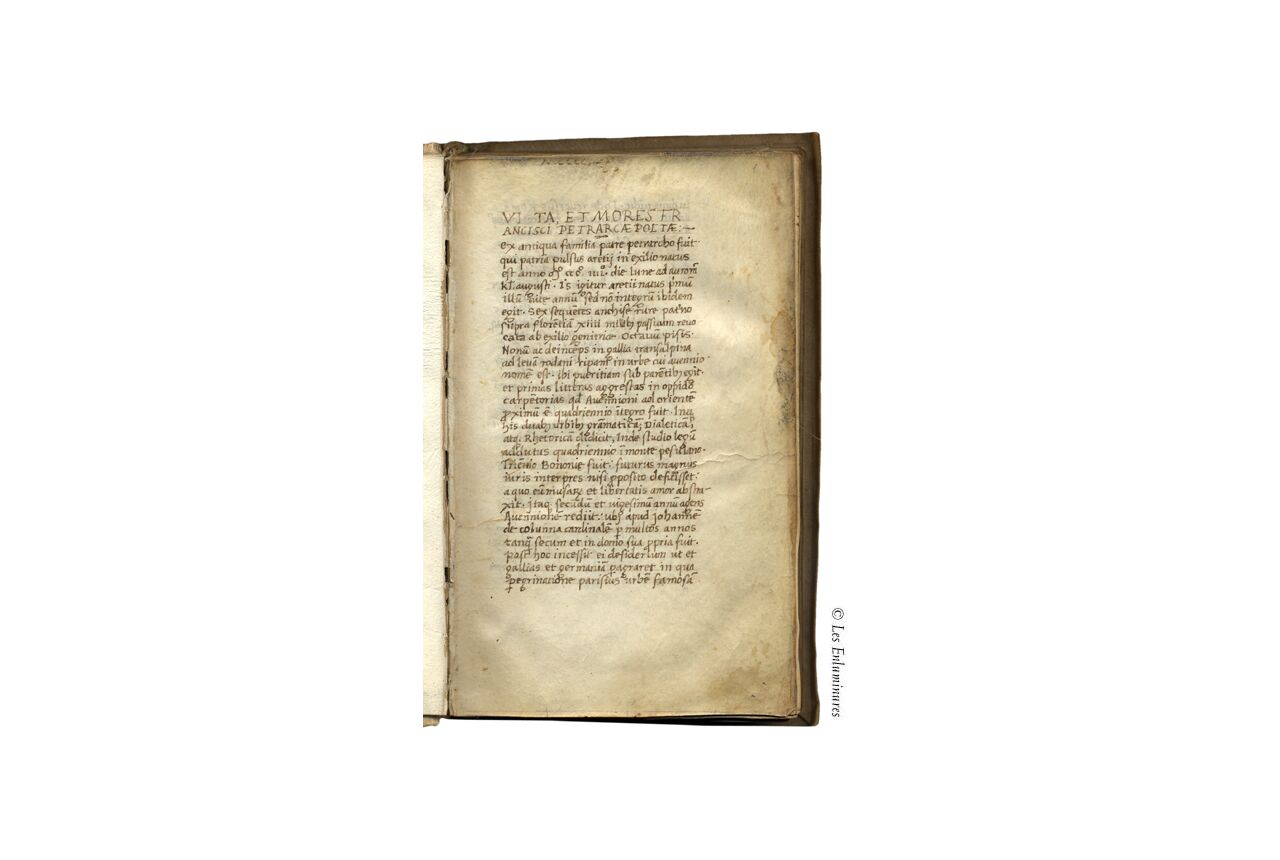 VI TA, ET MORES FR
ANCISCI PETRARCÆ POETÆ:
Ex antiqua familia patre petrarcho fuit.
qui patria pulsus aretii in exilio natus
est anno die lune ad aurorā
kl. augusti. Is igitur aretii natus pmū
illū vite annū sed nō integrū ibidem
egit. Sex sequētes anchise rure patno
supra florētiā xiiii passuum revo
cata ab exilio genitrice Octavū pisis.
Nonū ac deinceps in gallia transalpina
ad levā rodani ripam in urbe cui avennio
nomē est. ibi pueritiam sub egit.
et primas litteras aggrestas in oppido
carpentorias qd Avennioni ad orientē
pximū ē quadriennio ītegro fuit. Inq
his urbibꝫ grāmaticā; Dialeticā;
atq. Rhetoricā didicit, Inde studio legū
quadriennio ī monte pesulano.
Triēnio Bononie fuit: futurus magnus
iuris interpres nisi pposito defuisset:
a quo eū et libertatis amor abstra
xit. Itaq secūdū et vigesimum annū agēs
rediit: ubi apud Johannē
de columna cardinalē p multos annos
tanq secum et in domo sua ppria fuit.
post hoc incessit ei desiderium ut et
gallias et germaniā pagraret in qua
pegrinatione parisius urbē famosā
© Les Enluminures